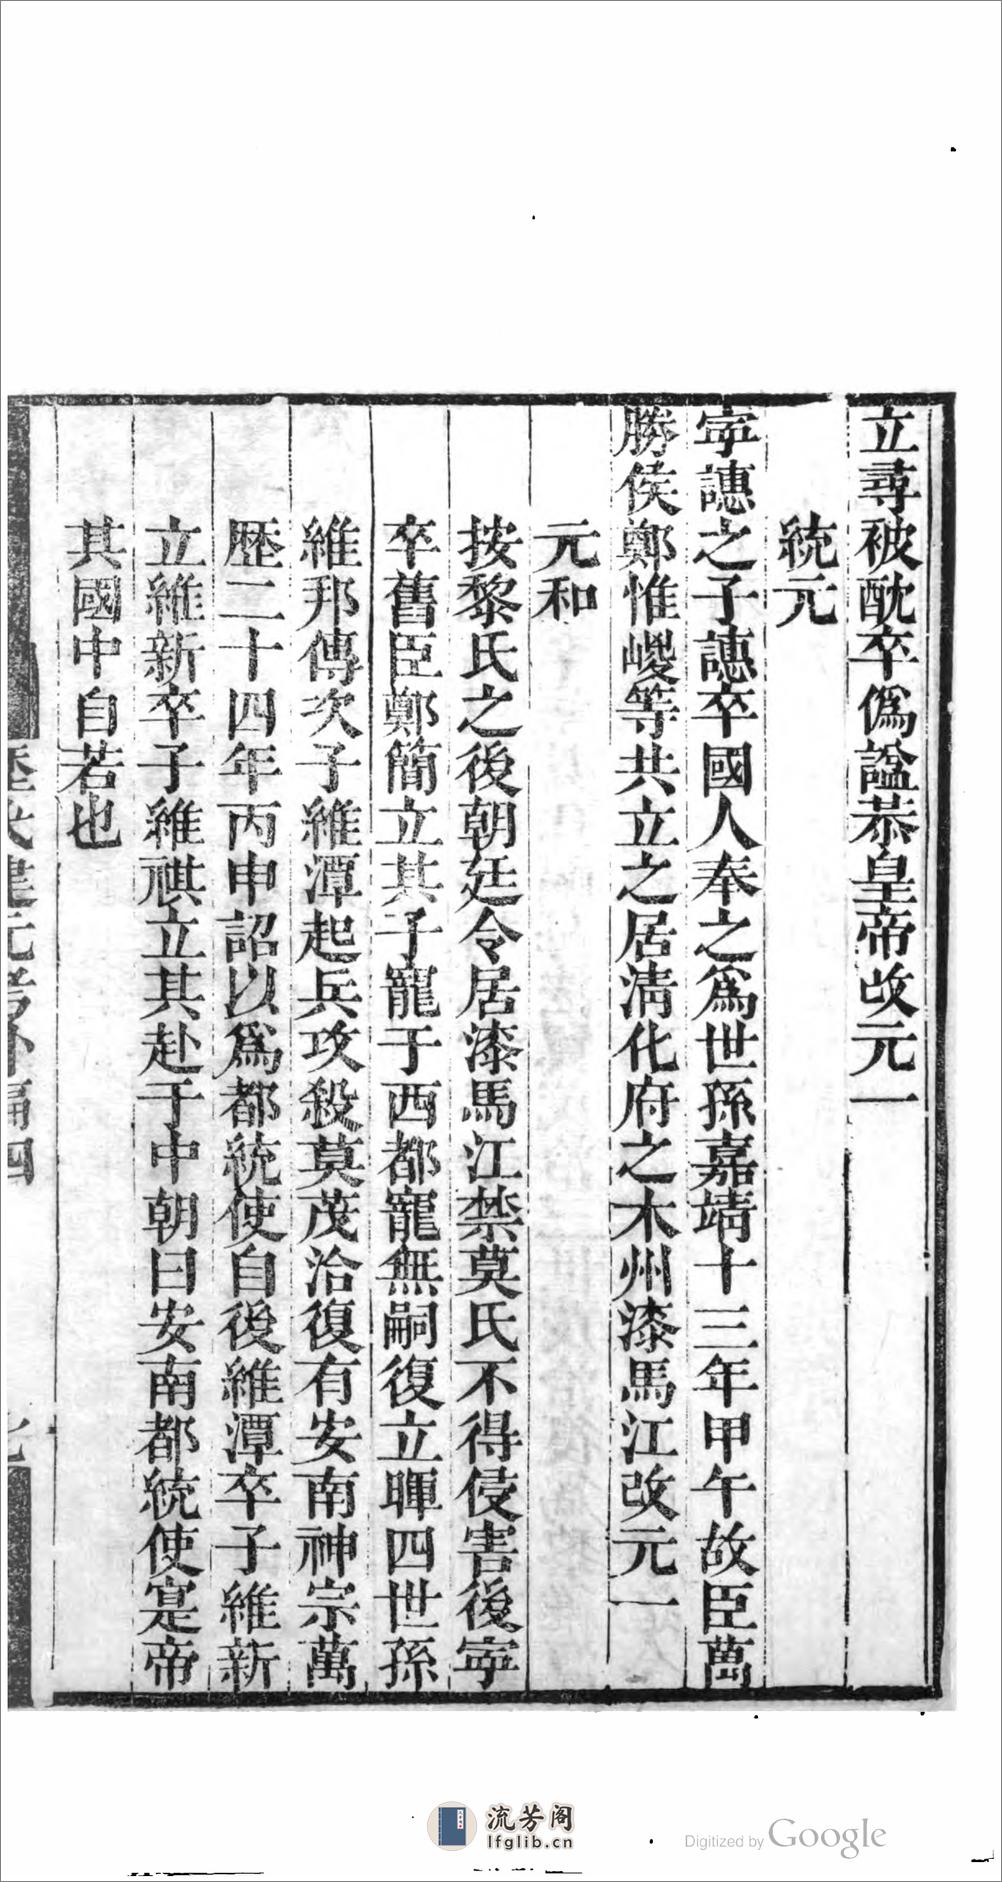 立尋被酖卒僞諡恭皇帝改元一
統元
寧譓之子譓卒國人奉之爲世孫嘉靖十三年甲午故臣萬
勝侯鄭惟㟲等共立之居清化府之木州漆馬江改元一
元和
按黎氏之後朝廷令居漆馬江禁莫氏不得侵害後寧
卒舊臣鄭簡立其子寵于西都寵無嗣復立暉四世孫
維邦傳次子維潭起兵攻殺莫茂洽復有安南神宗萬
歷二十四年丙申詔以爲都統使自後維潭卒子維新
立維新卒子維祺立其赴于中朝曰安南都統使寔帝
其國中自若也
歷代建元考外編四
流芳阁
lfglib.cn
Digitized by Google